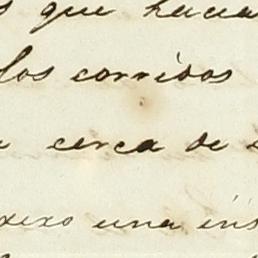 que hacia
los corridos
cerca de
una